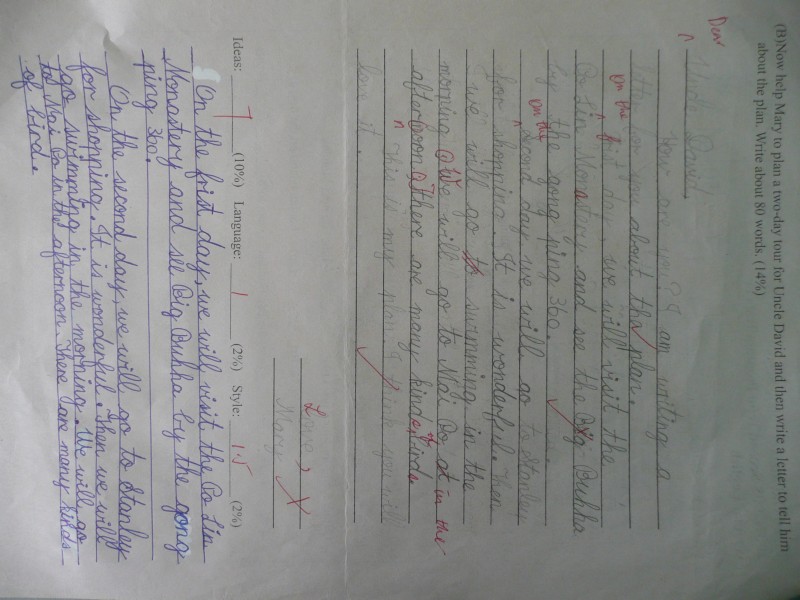 (B)Now help Mary to plan a two-day tour for Uncle David and then write a letter to tell him
about the plan. Write about 80 words. (14%)
Dear
Uncle David,
How are you? I am writing a
letter for you about the plan.
On the
first day, we will visit the
Po Lin Monastery and see the Big Buhha
by the gong ping 360.
On the
second day we will go to Stanley
for shopping. It is wonderful. Then
we will go to swimming in the
morning. We will go to Nai Go at in the
afternoon. There are many kinds of bird.
This is my plan. I think you will
love it.
Love,
Mary
Ideas: 7 (10%) Language: 1 (2%) Style: 1.5 (2%)
On the frist day, we will visit the Po Lim
Monastery and see Big Buhha by the gong
ping 360.
On the second day, we will go to Stanley
for shopping. It is wonderful. Then we will
go swimming in the morning. We will go
to Nai Go in the afternoon. There are many kinds
of bird.